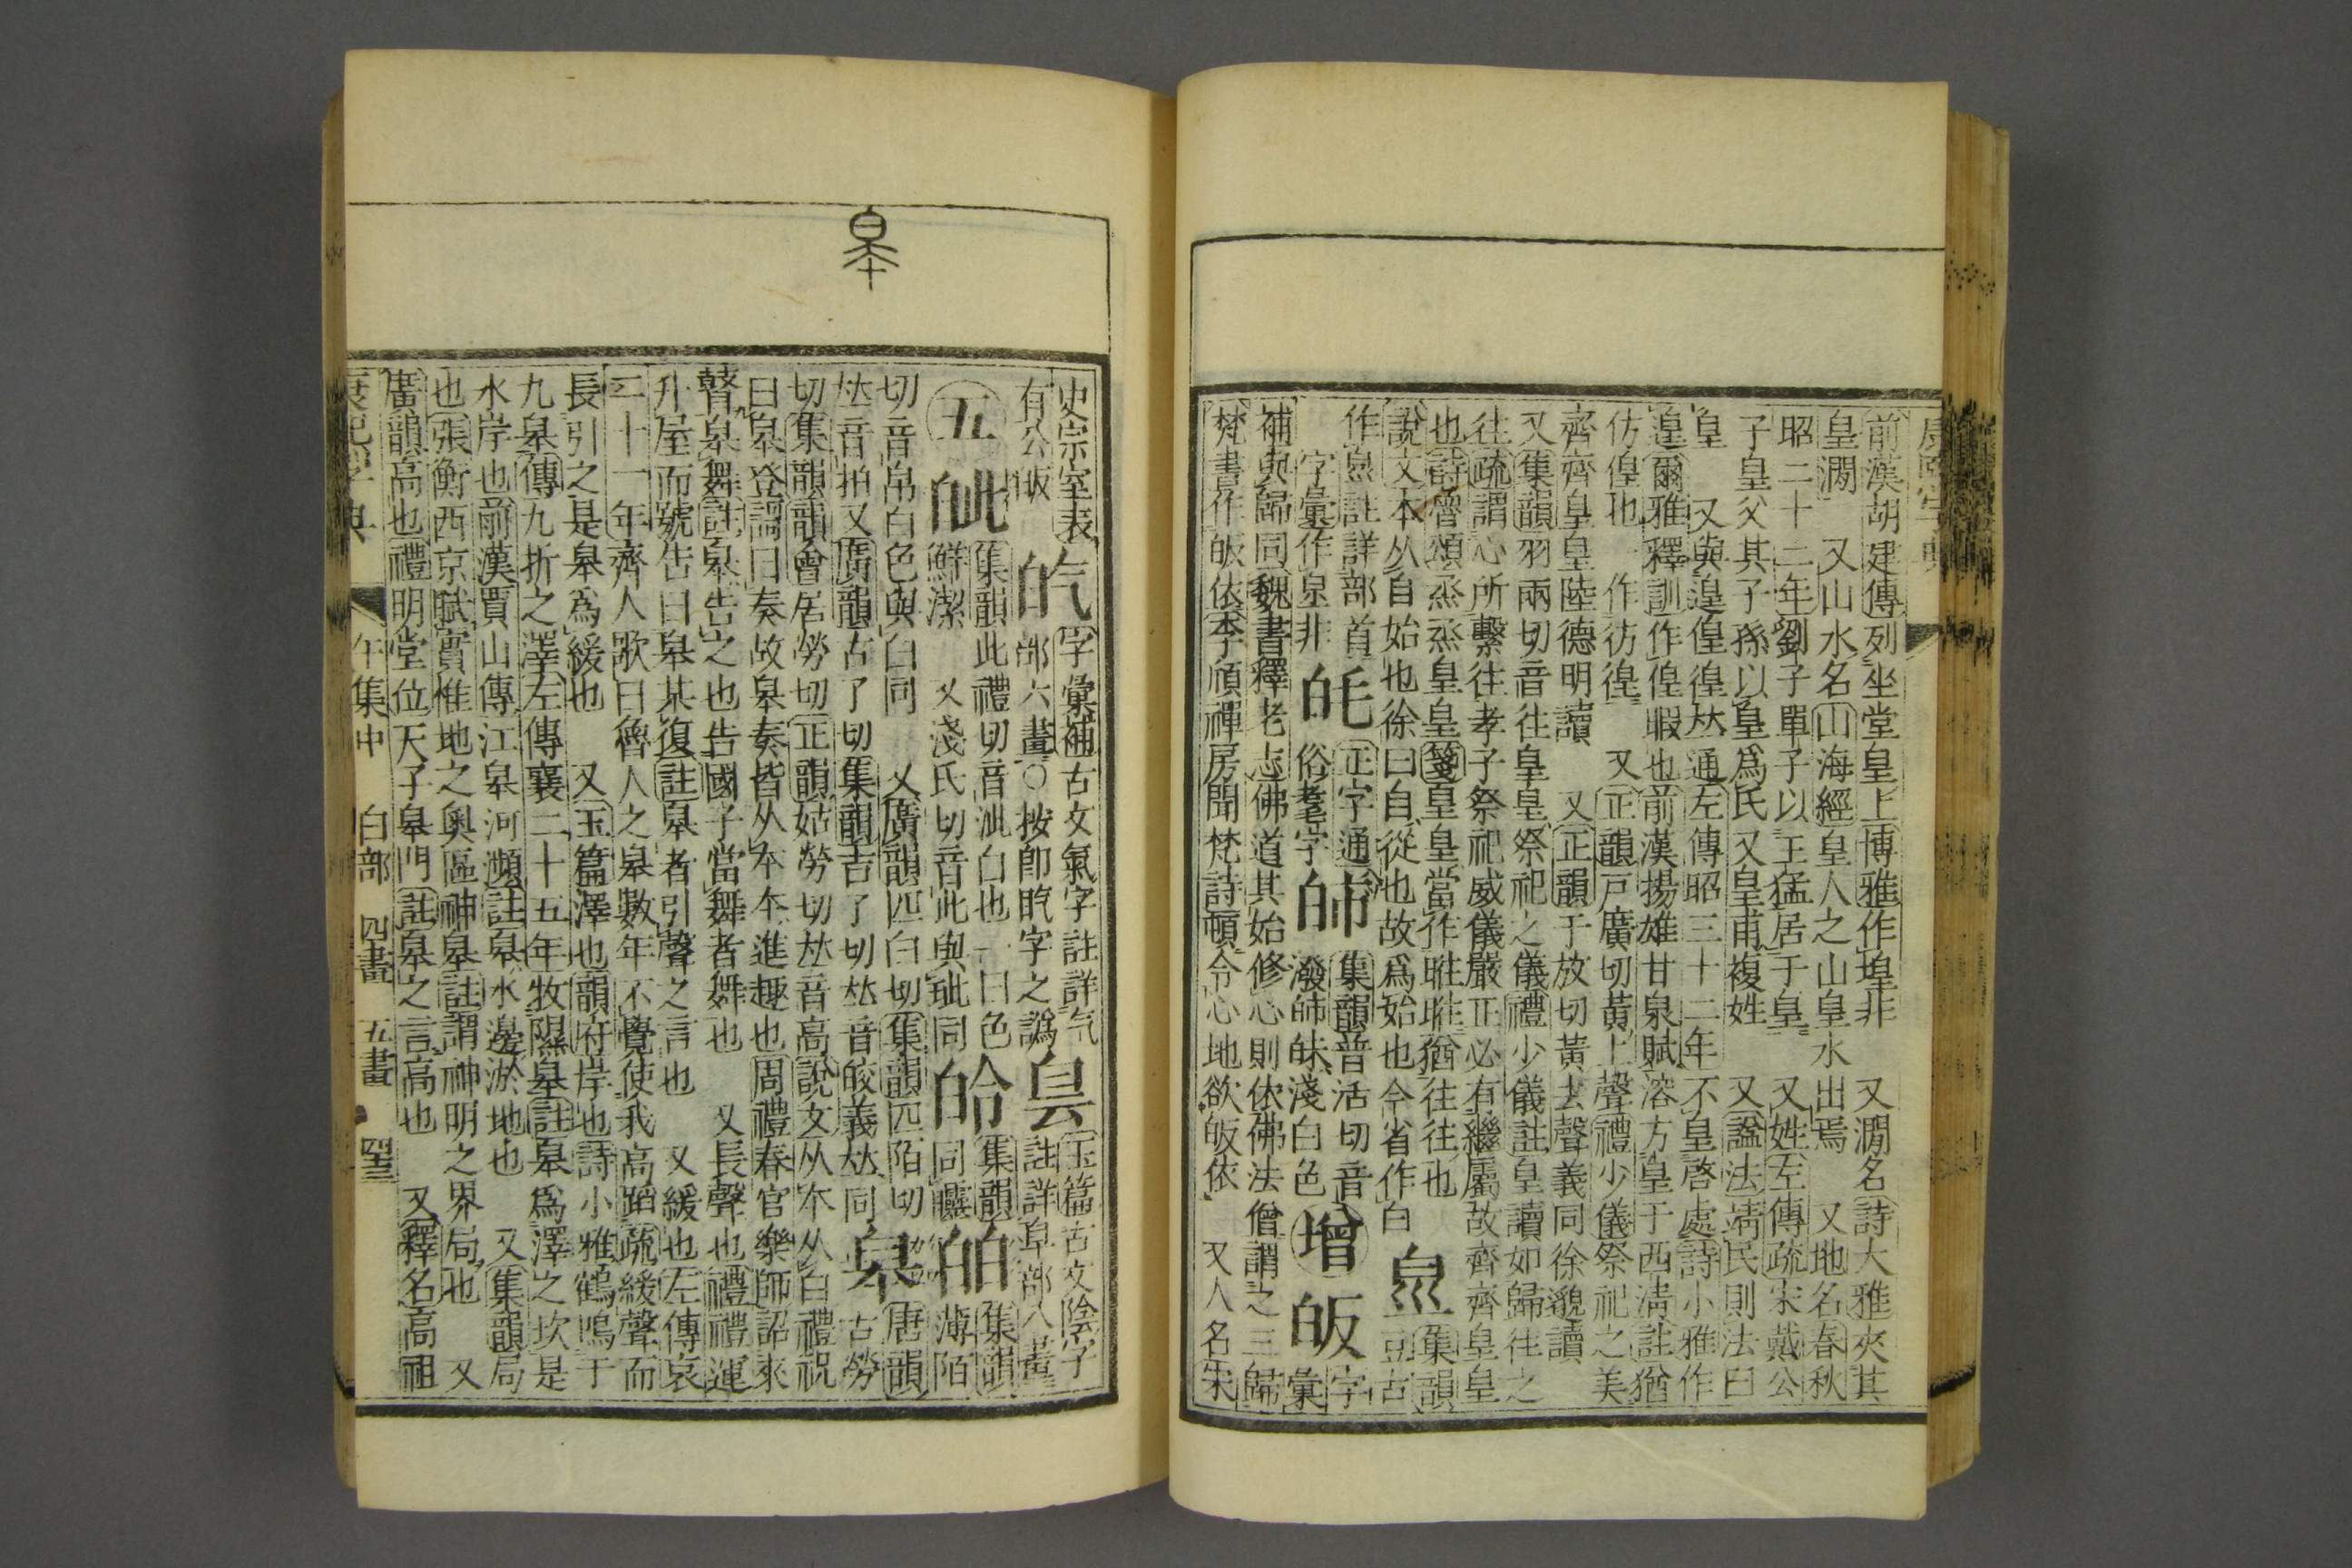 前漢胡建傳列坐堂皇上博雅作堭非 又澗名詩大雅夾其
皇澗 又山水名山海經皇人之山皇水出焉 又地名春秋
昭二十二年劉子單子以王猛居于皇 又姓左傳疏宋戴公
子皇父其子孫以皇爲氏又皇甫複姓 又諡法靖民則法曰
皇 又與遑偟徨𠀤通左傳昭三十二年不皇啓處詩小雅作
遑爾雅釋訓作偟暇也前漢揚雄甘泉賦溶方皇于西淸註猶
仿偟也一作彷徨 又正韻戸廣切黃上聲禮少儀祭祀之美
齊齊皇皇陸德明讀 又正韻于放切黃去聲義同徐邈讀
又集韻羽兩切音往皇皇祭祀之儀禮少儀註皇讀如歸往之
往疏謂心所繫往孝子祭祀威儀嚴正必有繼屬故齊齊皇皇
也詩魯頌烝烝皇皇箋皇皇當作暀暀猶往往也
說文本从自始也徐曰自從也故爲始也今省作白
𤽄 集韻古
作𤽄註詳部首
字彙作泉非
𣬜 正字通
俗耄字
㿛 集韻普活切音
潑㿛𤽍淺白色
增
皈 字彙
補與歸同魏書釋老志佛道其始修心則依佛法僧謂之三歸
梵書作皈依李頎禪房聞梵詩頓令心地欲皈依 又人名宋
史宗室表
有公皈
𣱛 字彙補古文氣字註詳气
部六畫○按卽盵字之譌
𤽎 玉篇古文陰字
註詳阜部八畫
五
皉 集韻此禮切音泚白也一曰色
鮮潔 又淺氏切音此與玼同
皊 集韻
同𪚎
皛 集韻薄陌
切音帛白色與白同 又廣韻匹白切集韻匹陌切
𠀤音拍又廣韻古了切集韻吉了切𠀤音皎義𠀤同
皋 唐韻古勞
切集韻韻會居勞切正韻姑勞切𠀤音高說文从夲从白禮祝
曰皋登謌曰奏故皋奏皆从夲夲進趣也周禮春官樂師詔來
瞽皋舞註皋告之也告國子當舞者舞也 又長聲也禮禮運
升屋而號告曰皋某復註皋者引聲之言也 又緩也左傳哀
二十一年齊人歌曰魯人之皋數年不覺使我高蹈疏緩聲而
長引之是皋爲緩也 又玉篇澤也韻府岸也詩小雅鶴鳴于
九皋傳九折之澤左傳襄二十五年牧隰皋註皋爲澤之坎是
水岸也前漢賈山傳江皋河瀕註皋水邊淤地也 又集韻局
也張衡西京賦實惟地之奧區神皋註謂神明之界局也 又
廣韻高也禮明堂位天子皋門註皋之言高也 又釋名高祖
康熙字典 午集中 白部 四畫 五畫
皋